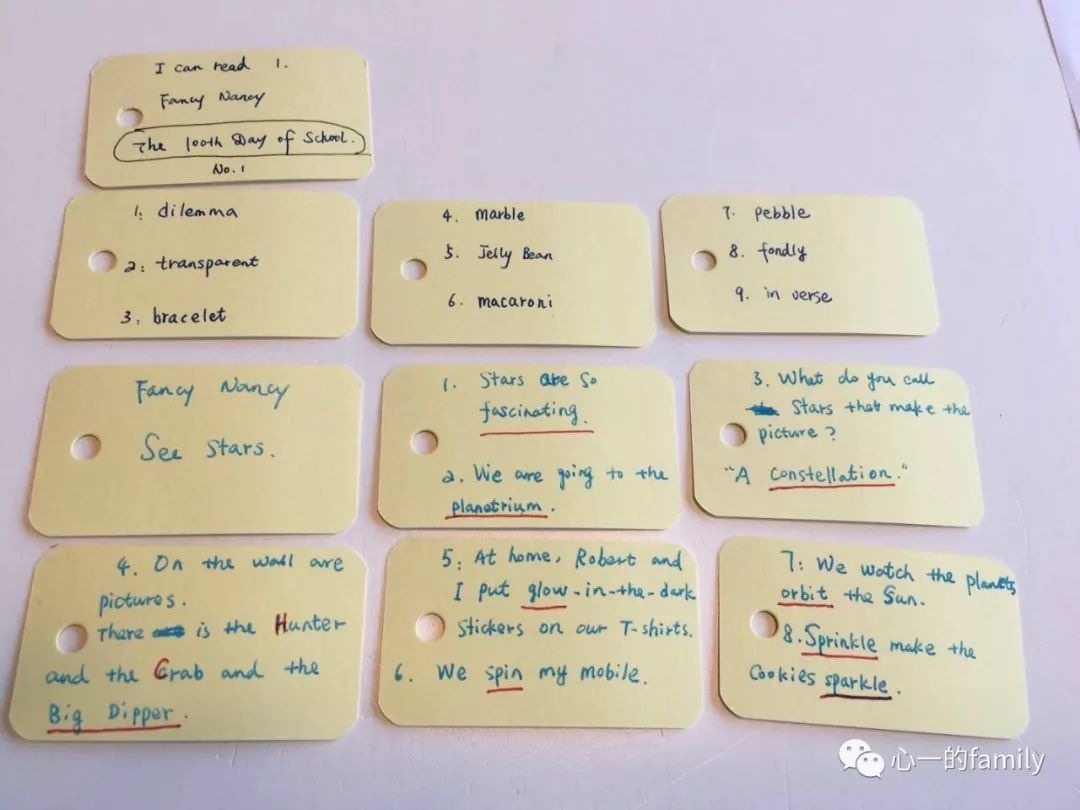 I can read 1.
Fancy Nancy
The 100th Day of School.
No.1
1: dilemma
2: transparent
3. bracelet
4. marble
5. Jelly Bean
6. macaroni
7. pebble
8. fondly
9. in verse
Fancy Nancy
See Stars.
1. Stars are so
fascinating.
2. We are going to the
planetrium.
3. What do you call
Stars that make the
picture?
"A constellation."
4. On the wall are
pictures.
There is the Hunter
and the Crab and the
Big Dipper.
5: At home, Robert and
I put glow-in-the-dark
Stickers on our T-shirts.
6. We spin my mobile.
7: We watch the planets
orbit the Sun.
8. Sprinkle make the
Cookies sparkle.
心一的family